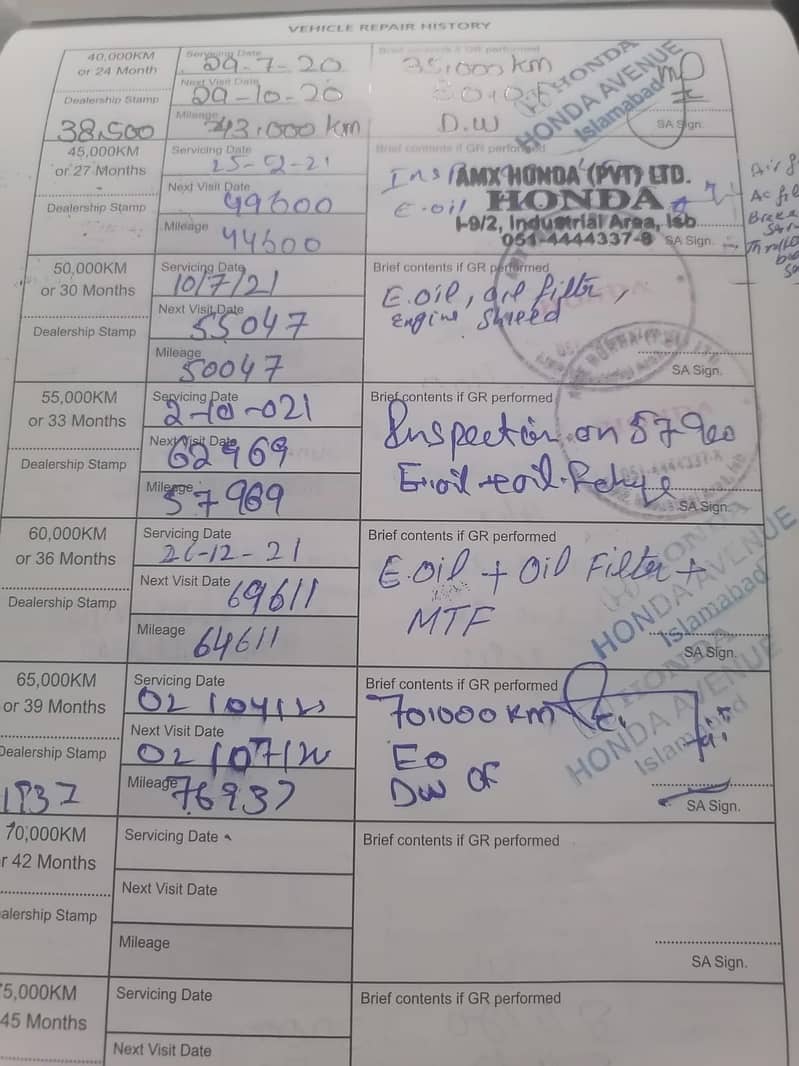 VEHICLE REPAIR HISTORY
40,000KM
or 24 Month
Dealership Stamp
38,500
Servicing Date
29-7-20
Next Visit Date
29-10-20
Mileage
43,000 km
Brief contents if GR performed
35,000 km
D.W
HONDA
HONDA AVENUE
Islamabad
SA Sign.
45,000KM
or 27 Months
Dealership Stamp
Servicing Date
25-02-21
Next Visit Date
49600
Mileage
44600
Brief contents if GR performed
E.oil
AMX HONDA (PVT) LTD.
HONDA
I-9/2, Industrial Area, Isb
051-4444337-8
SA Sign.
50,000KM
or 30 Months
Dealership Stamp
Servicing Date
10/7/21
Next Visit Date
55047
Mileage
50047
Brief contents if GR performed
E.oil, oil filter,
Engine Shield
SA Sign.
55,000KM
or 33 Months
Dealership Stamp
Servicing Date
2-10-021
Next Visit Date
62969
Mileage
57969
Brief contents if GR performed
Inspection on 57900
E.oil
SA Sign.
60,000KM
or 36 Months
Dealership Stamp
Servicing Date
26-12-21
Next Visit Date
69611
Mileage
64611
Brief contents if GR performed
E.Oil + Oil Filter +
MTF
HONDA
HONDA AVENUE
Islamabad
SA Sign.
65,000KM
or 39 Months
Dealership Stamp
Servicing Date
Next Visit Date
Mileage
76937
Brief contents if GR performed
70,000 KM
EO
DW OF
HONDA
HONDA AVENUE
Islamabad
SA Sign.
70,000KM
r 42 Months
alership Stamp
Servicing Date
Next Visit Date
Mileage
Brief contents if GR performed
SA Sign.
5,000KM
45 Months
Servicing Date
Next Visit Date
Brief contents if GR performed